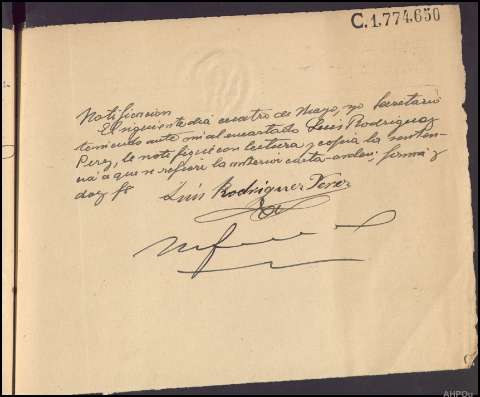 C.1.774.650
Notificacion
El siguiente dia cuatro de Mayo, yo Secretario
teniendo ante mi al encartado Luis Rodriguez
Perez, le notifiqué con lectura y copia la senten
cia a que se refiere la anterior carta-orden, firma y
doy fé
Luis Rodriguez Perez
AHPOu